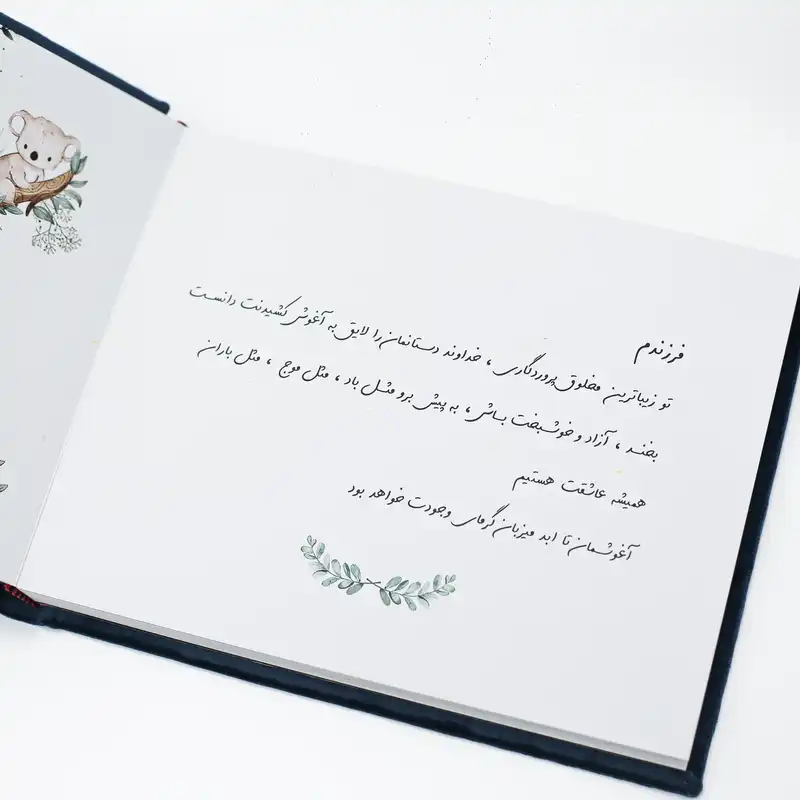 فرزندم
تو زیباترین مخلوق پروردگاری ، خداوند دستانمان را لایق به آغوش کشیدنت دانست
بخند ، آزاد و خوشبخت باش ، به پیش برو مثل باد ، مثل موج ، مثل باران
همیشه عاشقت هستیم
آغوشمان تا ابد میزبان گرمای وجودت خواهد بود